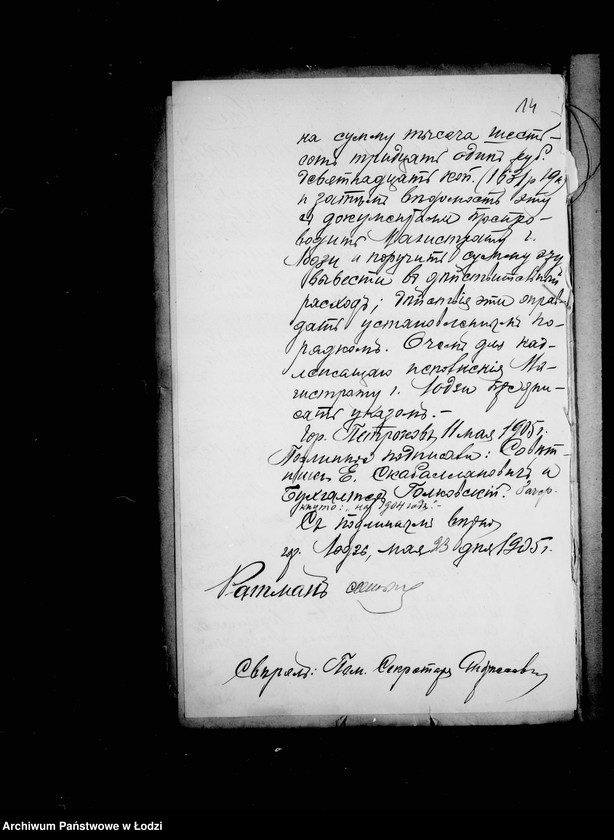 14
на сумму тысяча шесть-
сотъ тридцать одинъ руб.
девятнадцать коп. (1631 р 19 к)
и затѣмъ вѣдомость эту
съ документами препро-
водить Магистрату г.
Лодзи и поручить сумму эту
вывести въ дѣйствительный
расходъ; дѣйствія эти оправ-
дать установленнымъ по-
рядкомъ. О чемъ для над-
лежащаго исполненія Ма-
гистрату г. Лодзи предпи-
сать указомъ.-
Гор. Петроковъ, 11 мая 1905 г.
Подлинное подписали: Совѣт-
никъ Е. Скабаллановичъ и
Бухгалтеръ Голковскій. Зачер-
кнуто: "на 1904 годъ".-
Съ подлиннымъ вѣрно
гор. Лодзь, мая 23 дня 1905 г.
Ратманъ
Свѣрялъ: Пом. Секретаря
Archiwum Państwowe w Łodzi